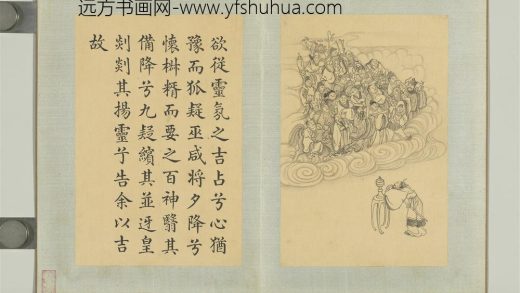 远方书画网-www.yfshuhua.com
欲從靈氛之吉占兮心猶
豫而狐疑巫咸將夕降兮
懷椒糈而要之百神翳其
備降兮九疑繽其並迓皇
剡剡其揚靈兮告余以吉
故